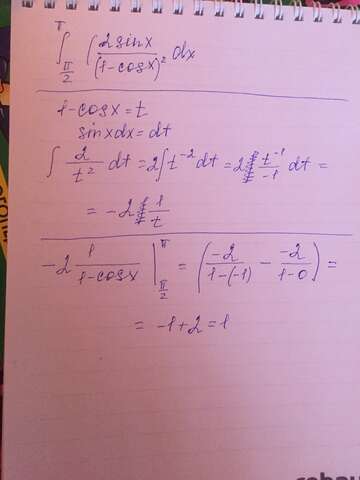 ∫_{π/2}^{π} ( 2sinx/(1-cosx)² dx
1-cosx=t
sinxdx=dt
∫ 2/t² dt=2∫t⁻²dt=2 t⁻¹/-1 dt=
= -2 1/t
-2 1/(1-cosx) |_{π/2}^{π} = (-2/(1-(-1)) - -2/(1-0)) =
= -1+2=1